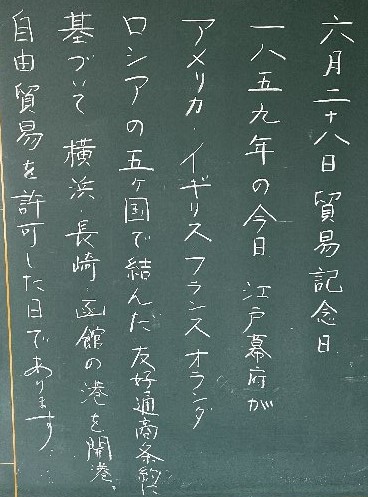 六月二十八日 貿易記念日
一八五九年の今日 江戸幕府が
アメリカ・イギリス フランス オランダ
ロシアの五ヶ国で結んだ友好通商条約に
基づいて 横浜・長崎・函館の港を開港、
自由貿易を許可した日であります